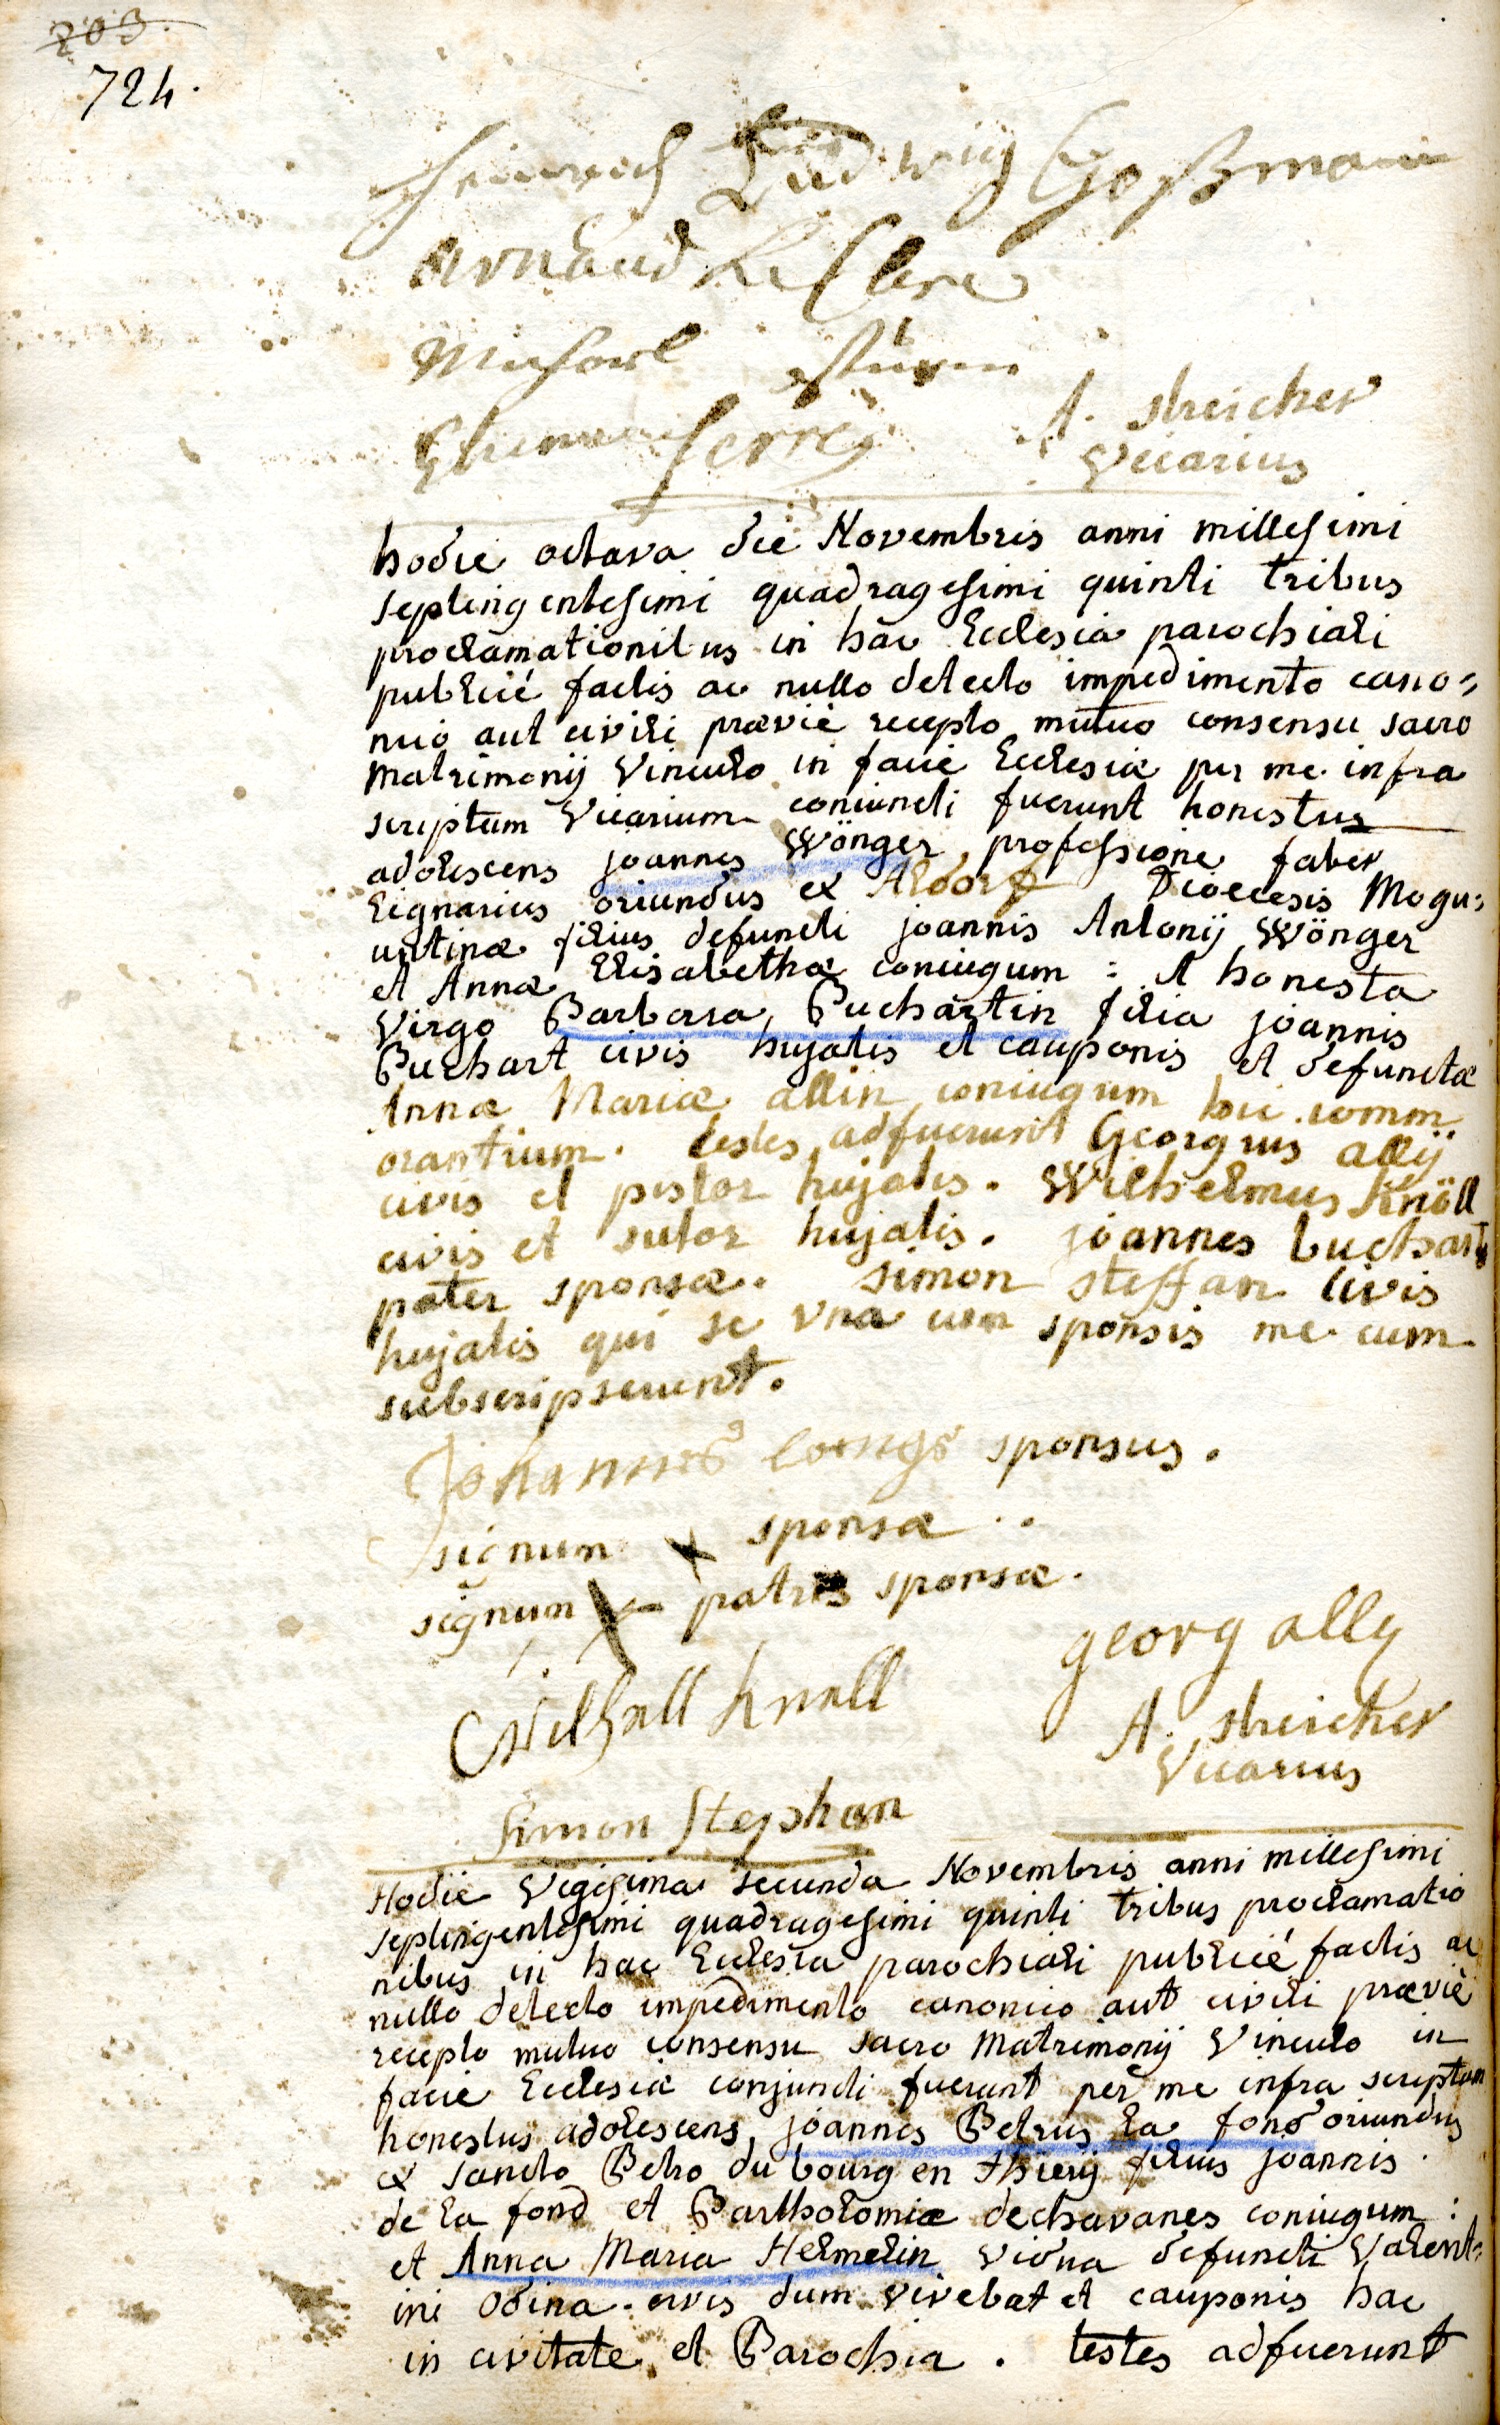 203.
724.
Heinrich Ludwig Goßman
Arnaud Le Clere
Michael Sturm
ferreÿ A. streicher
Vicarius
hodie octava die Novembris anni millesimi
septingentesimi quadragesimi quinti tribus
proclamationibus in hac Ecclesia parochiali
publicé factis ac nullo detecto impedimento cano=
nico aut civili prævie recepto mutuo consensu sacro
Matrimonij Vinculo in facie Ecclesiæ per me infra
scriptum Vicarium coniuncti fuerunt honestus
adolescens joannes Wönger professione faber
lignarius oriundus ex Aldorf Dioecesis Mogu=
untinæ filius defuncti joannis Antonij Wönger
et Annæ Elisabethæ coniugum : et honesta
Virgo Barbara Buchartin filia joannis
Buchart civis hujatis et cauponis et defunctæ
Annæ Mariæ allin coniugum hic comm
orantium. testes adfuerunt Georgius allÿ
civis et pistor hujatis. Wilhelmus Knöll
civis et sutor hujatis. joannes buchart
pater sponsæ. simon steffan civis
hujatis qui se vna cum sponsis me cum
subscripserunt.
Johannes sponsus.
signum x sponsæ ..
signum x patris sponsæ.
georg ally
Wilhelm Knoll
A. streicher
Vicarius
Simon Stephan
Hodie Vigesima secunda Novembris anni millesimi
septingentesimi quadragesimi quinti tribus proclamatio
nibus in hac Ecclesia parochiali publicé factis ac
nullo detecto impedimento canonico aut civili prævie
recepto mutuo consensu sacro Matrimonij Vinculo in
facie Ecclesiæ conjuncti fuerunt per me infra scriptum
honestus adolescens joannes Petrus la fond oriundus
ex sancto Petro du bourg en thierÿ filius joannis
de la fond et Bartholomiæ dechavanes coniugum :
et Anna Maria Helmelin vidua defuncti Valent=
ini Odina civis dum vivebat et cauponis hac
in civitate et Parochia. testes adfuerunt